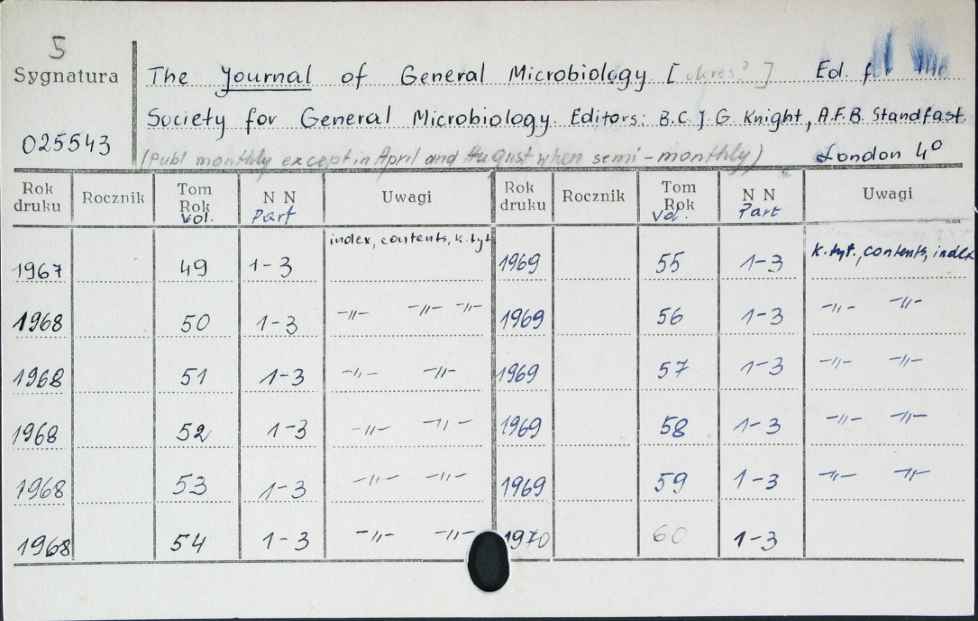 5
Sygnatura
025543
The Journal of General Microbiology [ ] Ed. for the
Society for General Microbiology. Editors: B.C.J.G. Knight, A.F.B. Standfast
(Publ monthly except in April and August when semi-monthly) London 4°
Rok druku Rocznik Tom Rok Vol. N N Part Uwagi Rok druku Rocznik Tom Rok Vol. N N Part Uwagi
1967 49 1-3 index, contents, k. tyt 1969 55 1-3 k. tyt., contents, index
1968 50 1-3 -"- -"- -"- 1969 56 1-3 -"- -"-
1968 51 1-3 -"- -"- 1969 57 1-3 -"- -"-
1968 52 1-3 -"- -"- 1969 58 1-3 -"- -"-
1968 53 1-3 -"- -"- 1969 59 1-3 -"- -"-
1968 54 1-3 -"- -"- 1970 60 1-3